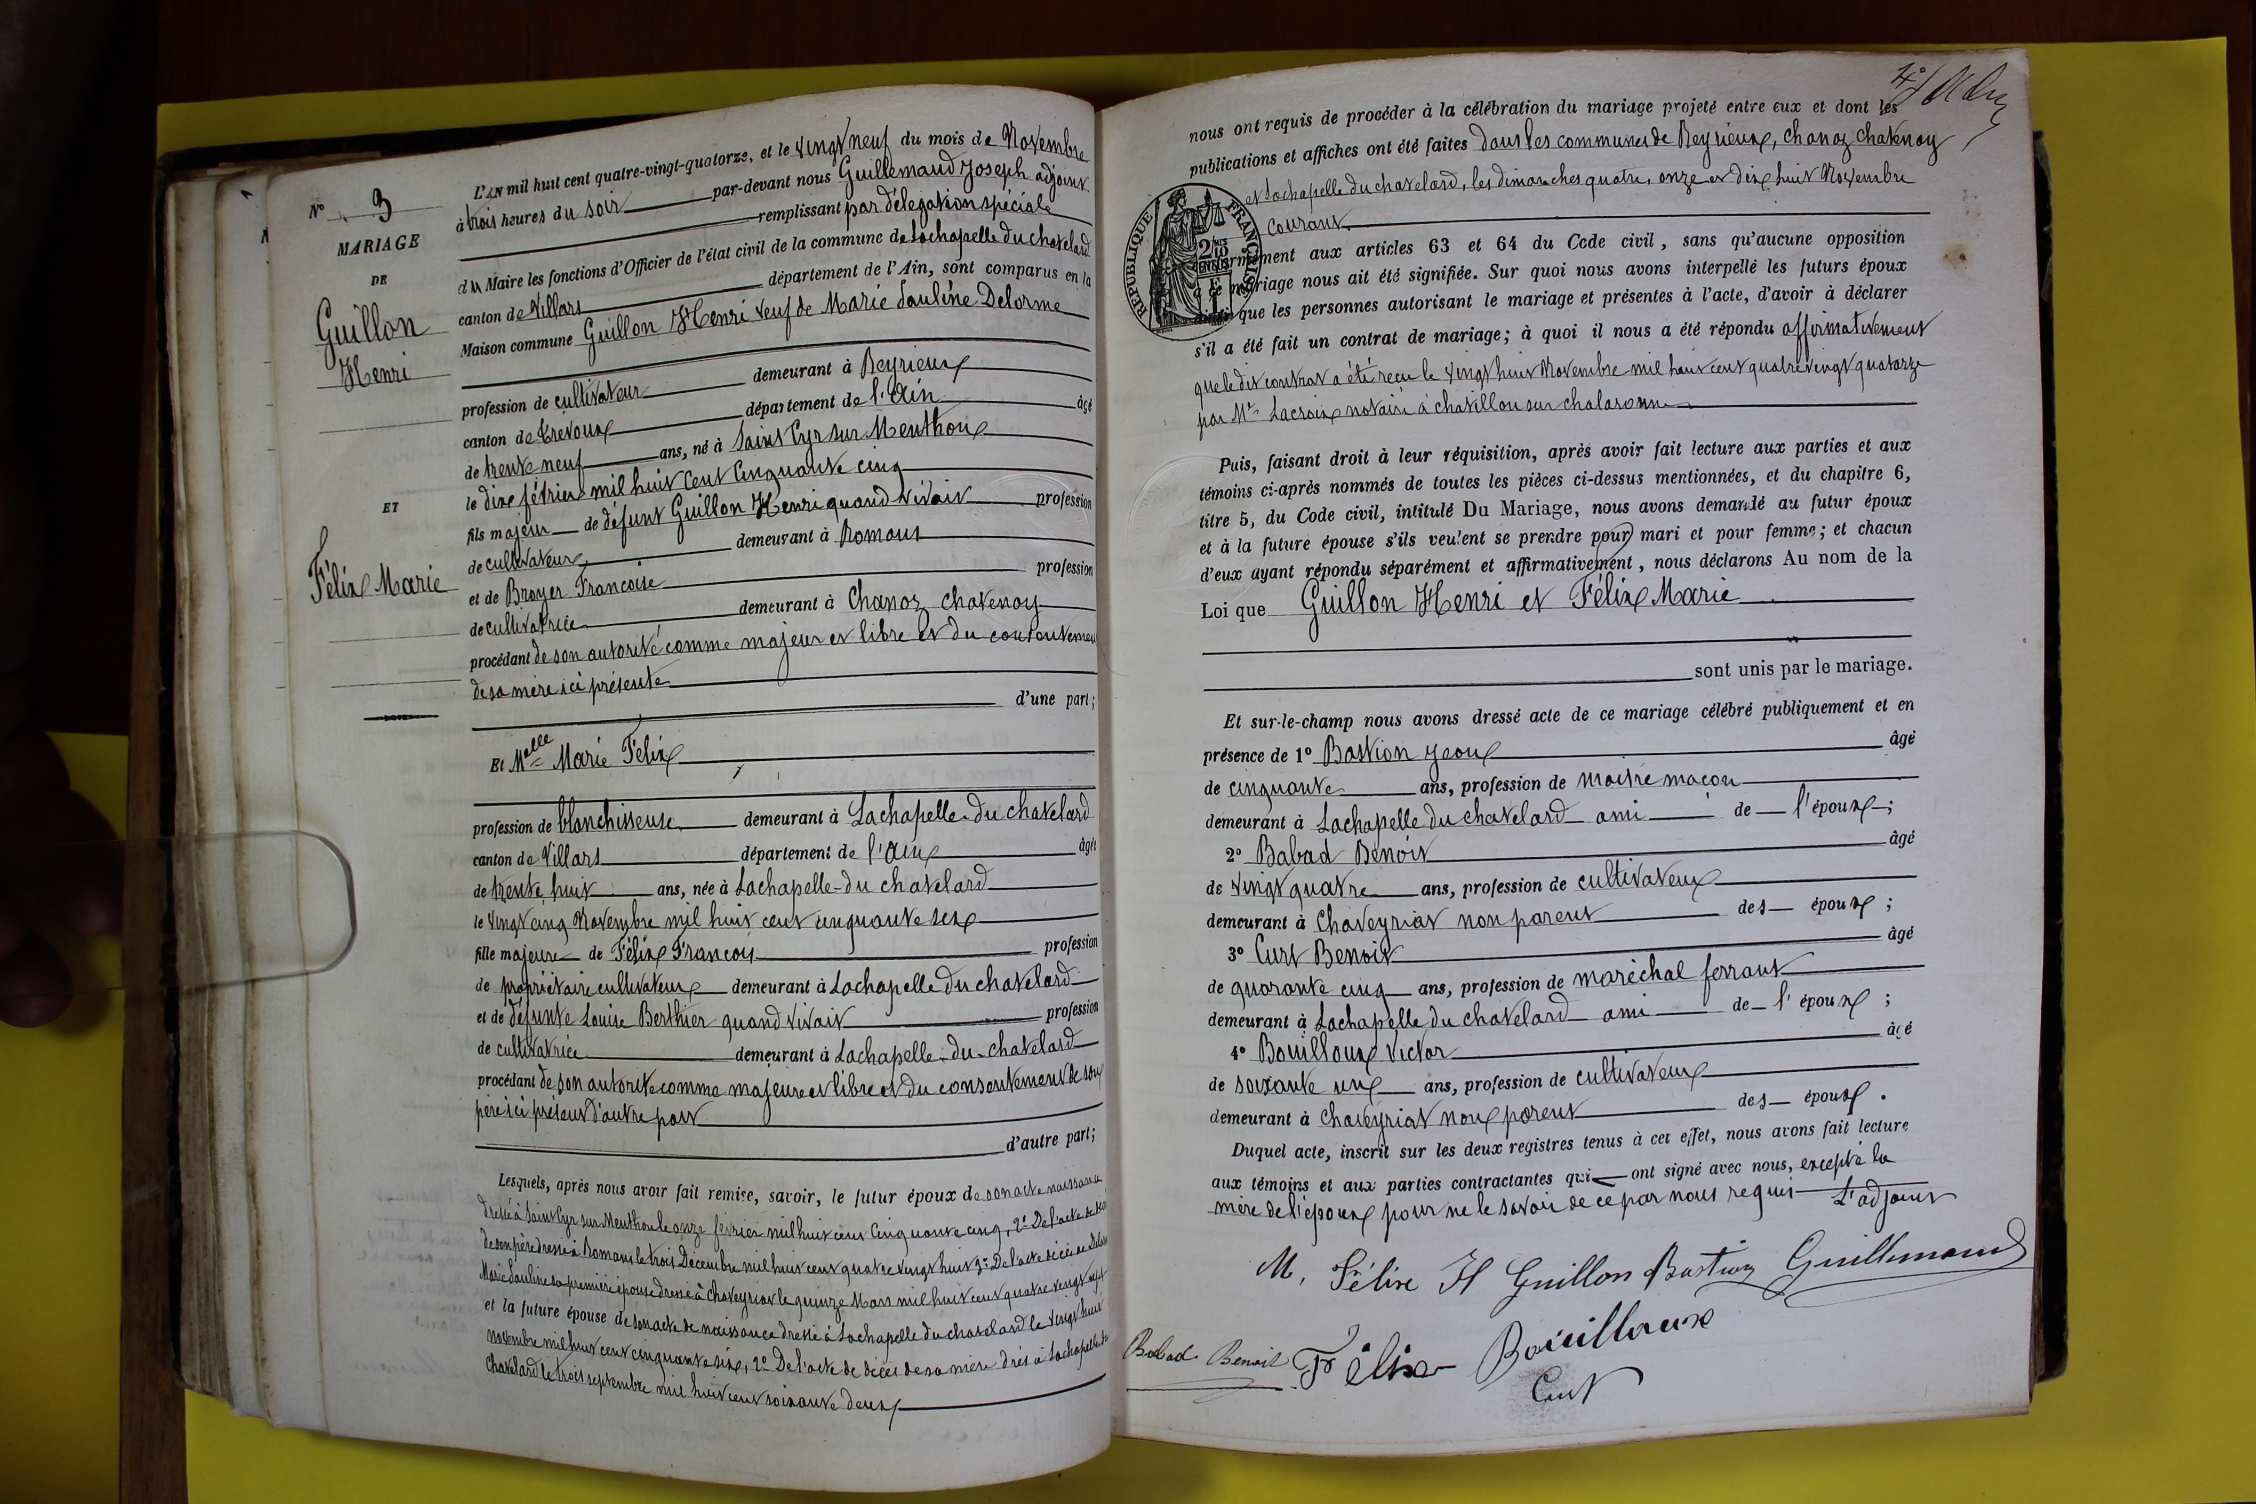 L'AN mil huit cent quatre-vingt-quatorze, et le vingt neuf du mois de Novembre
à trois heures du soir par-devant nous Guillemaud Joseph adjoint
remplissant par délégation spéciale
du Maire les fonctions d'Officier de l'état civil de la commune de Lachapelle du chatelard
canton de Villars département de l'Ain, sont comparus en la
Maison commune Guillon Henri veuf de Marie Pauline Delorme
profession de cultivateur demeurant à Reyrieux
canton de Trévoux département de l'Ain âgé
de trente neuf ans, né à Saint Cyr sur Menthon
le dix février mil huit cent cinquante cinq
fils majeur de défunt Guillon Henri quand vivait profession
de cultivateur demeurant à Romans
et de Broyer Francoise profession
de cultivatrice demeurant à Chanoz chatenay
procédant de son autorité comme majeur et libre et du consentement
de sa mère ici présente
d'une part;
Et Melle Marie Félix
profession de blanchisseuse demeurant à Lachapelle-du chatelard
canton de Villars département de l'Ain âgée
de trente huit ans, née à Lachapelle-du chatelard
le vingt cinq Novembre mil huit cent cinquante six
fille majeure de Félix Francois profession
de propriétaire cultivateur demeurant à Lachapelle du chatelard
et de défunte Louise Berthier quand vivait profession
de cultivatrice demeurant à Lachapelle-du-chatelard
procédant de son autorité comme majeure et libre et du consentement de son
père ici présent d'autre part
d'autre part;
Lesquels, après nous avoir fait remise, savoir, le futur époux de son acte naissance
dressé à Saint Cyr sur Menthon le onze février mil huit cent cinquante cinq, 2° De l'acte de
de son père dressé à Romans le trois Décembre mil huit cent quatre vingt huit 3° De l'acte décès de
Marie Pauline sa première épouse dressé à Chaveyriat le quinze Mars mil huit cent quatre vingt
et la future épouse de son acte de naissance dressé à Lachapelle du chatelard le vingt huit
novembre mil huit cent cinquante six, 2° De l'acte de décès de sa mère drés à Lachapelle du
chatelard le trois septembre mil huit cent soixante deux
N° 3
MARIAGE
DE
Guillon
Henri
ET
Félix Marie
nous ont requis de procéder à la célébration du mariage projeté entre eux et dont les
publications et affiches ont été faites dans les communes de Reyrieux, chanoz chatenay
et Lachapelle du chatelard, les dimanches quatre, onze et dix huit Novembre
courant
conformément aux articles 63 et 64 du Code civil, sans qu'aucune opposition
à ce mariage nous ait été signifiée. Sur quoi nous avons interpellé les futurs époux
ainsi que les personnes autorisant le mariage et présentes à l'acte, d'avoir à déclarer
s'il a été fait un contrat de mariage; à quoi il nous a été répondu affirmativement
que le dit contrat a été reçu le vingt huit Novembre mil huit cent quatre vingt quatorze
par Mr Lacroix notaire à chatillon sur chalaronne
RÉPUBLIQUE FRANÇAISE
Puis, faisant droit à leur réquisition, après avoir fait lecture aux parties et aux
témoins ci-après nommés de toutes les pièces ci-dessus mentionnées, et du chapitre 6,
titre 5, du Code civil, intitulé Du Mariage, nous avons demandé au futur époux
et à la future épouse s'ils veulent se prendre pour mari et pour femme; et chacun
d'eux ayant répondu séparément et affirmativement, nous déclarons Au nom de la
Loi que Guillon Henri et Félix Marie
sont unis par le mariage.
Et sur-le-champ nous avons dressé acte de ce mariage célébré publiquement et en
présence de 1° Bastion Jean âgé
de cinquante ans, profession de maitre maçon
demeurant à Lachapelle du chatelard ami de l'époux;
2° Babad Benoit âgé
de vingt quatre ans, profession de cultivateur
demeurant à Chaveyriat non parent des époux;
3° Curt Benoit âgé
de quarante cinq ans, profession de maréchal ferrant
demeurant à Lachapelle du chatelard ami de l'époux;
4° Bouilloux Victor âgé
de soixante un ans, profession de cultivateur
demeurant à Chaveyriat non parent des époux.
Duquel acte, inscrit sur les deux registres tenus à cet effet, nous avons fait lecture
aux témoins et aux parties contractantes qui ont signé avec nous, excepté la
mère de l'époux pour ne le savoir de ce par nous requis L'adjoint
M, Félix H Guillon Bastion Guillemaud
Babad Benoit Félix Bouilloux
Curt